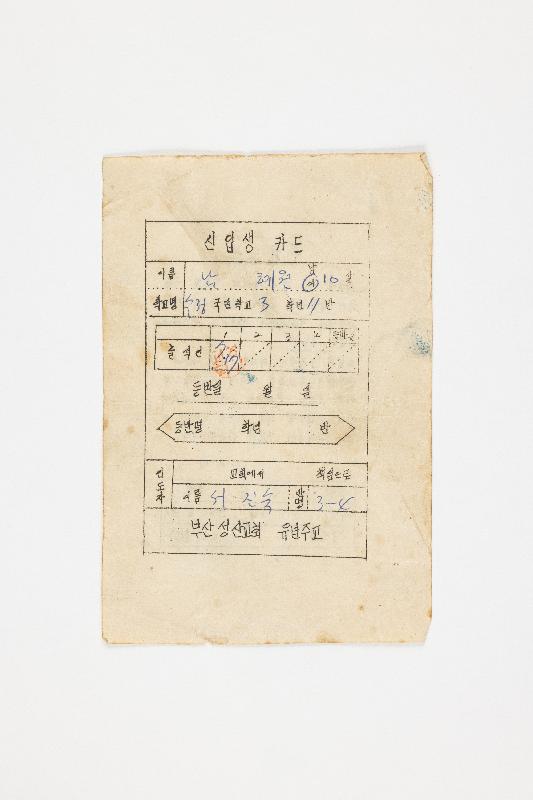 신입생 카드
이름 남 혜원 남 여 10 살
학교명 수정 국민학교 3 학년 11 반
1 2 3 4 등반일
출석란 7/17
등반일 월 일
등반별 학년 반
인도자 교회에서 책임으로
이름 서 진숙 반명 3-4
부산성산교회 유년주교